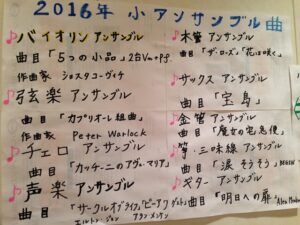 2016年 小アンサンブル曲
♪バイオリン アンサンブル
曲目「5つの小品」2台Vn+Pf.
作曲家 ショスタコーヴィチ
♪弦楽 アンサンブル
曲目「カプリオーレ組曲」
作曲家 Peter Warlock
♪チェロ アンサンブル
曲目「カッチーニのアヴェ・マリア」
♪声楽 アンサンブル
曲目「サークルオブライフ」「ビー・アワ ゲスト」
エルトン・ジョン アラン・メンケン
♪木管 アンサンブル
曲目「ザ・ローズ」「花は咲く」
♪サックス アンサンブル
曲目「宝島」
♪金管 アンサンブル
曲目「魔女の宅急便」
♪箏・三味線 アンサンブル
曲目「涙そうそう」
♪ギター アンサンブル
曲目「明日への扉」